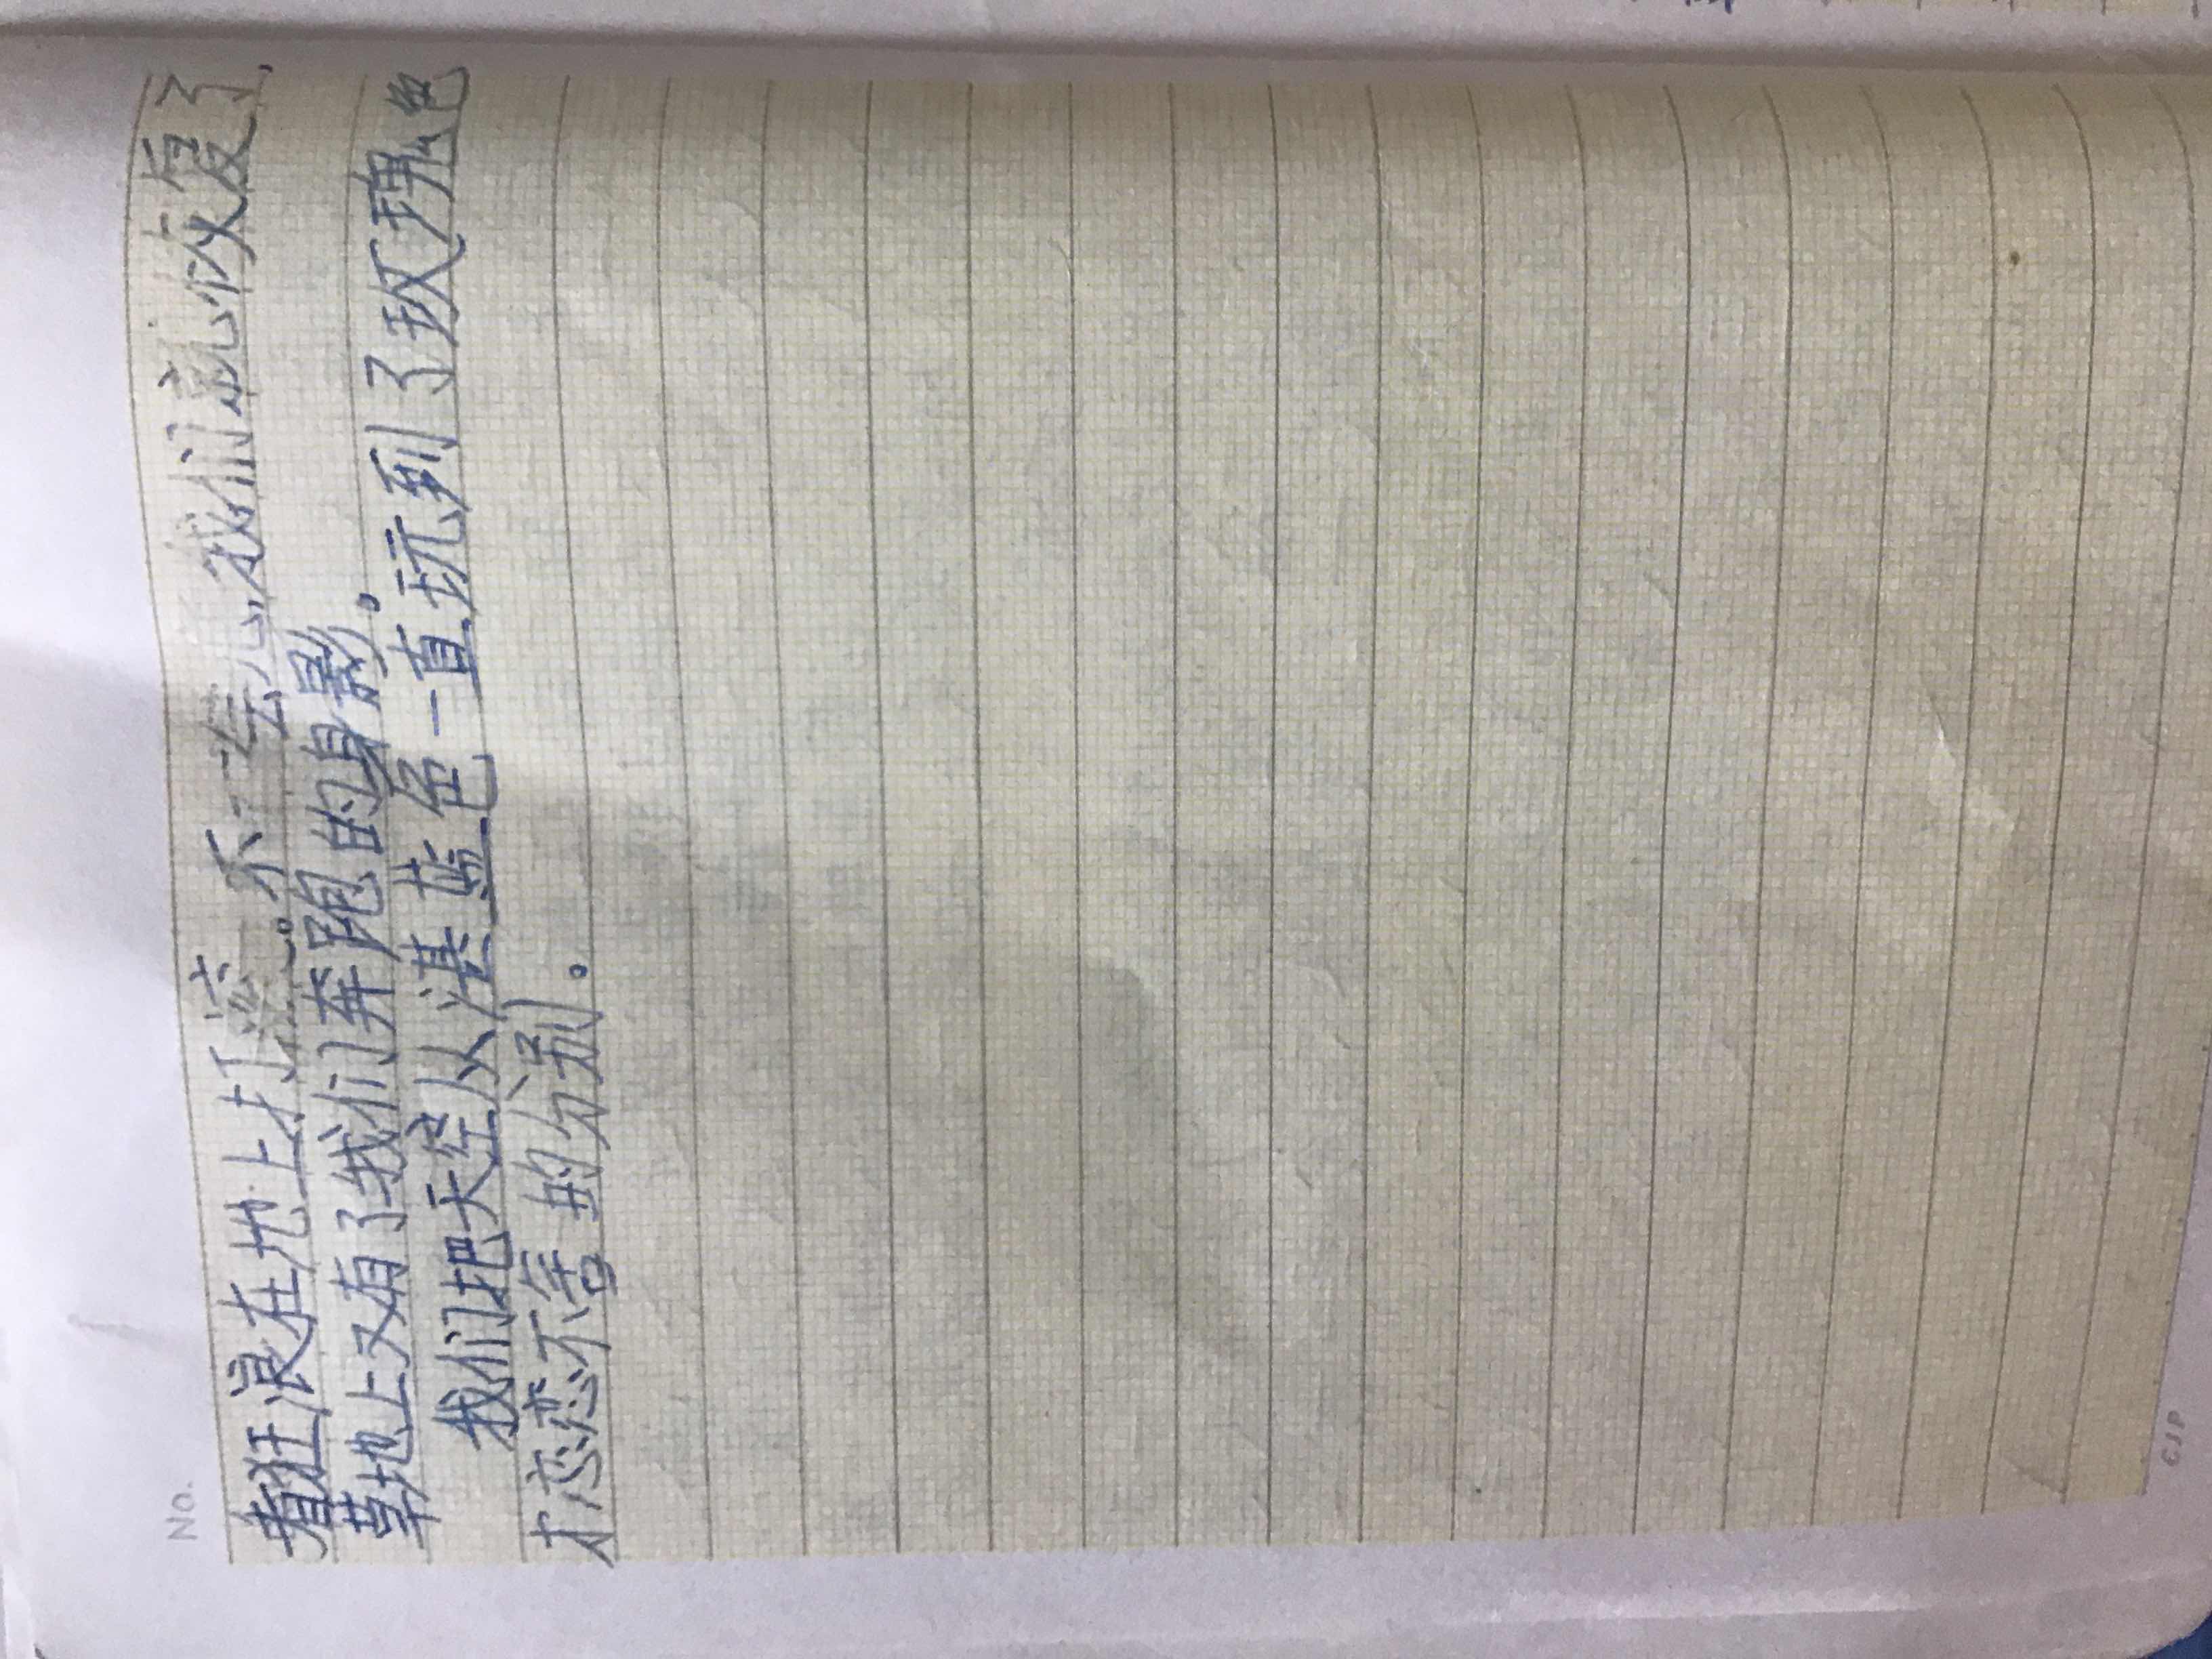 No.
着狂浪在地上打滚。不一会儿，我们就恢复了，
草地上又有了我们奔跑的身影.
我们把天空从湛蓝色一直玩到了玫瑰色
才恋恋不舍的分别。
CJP